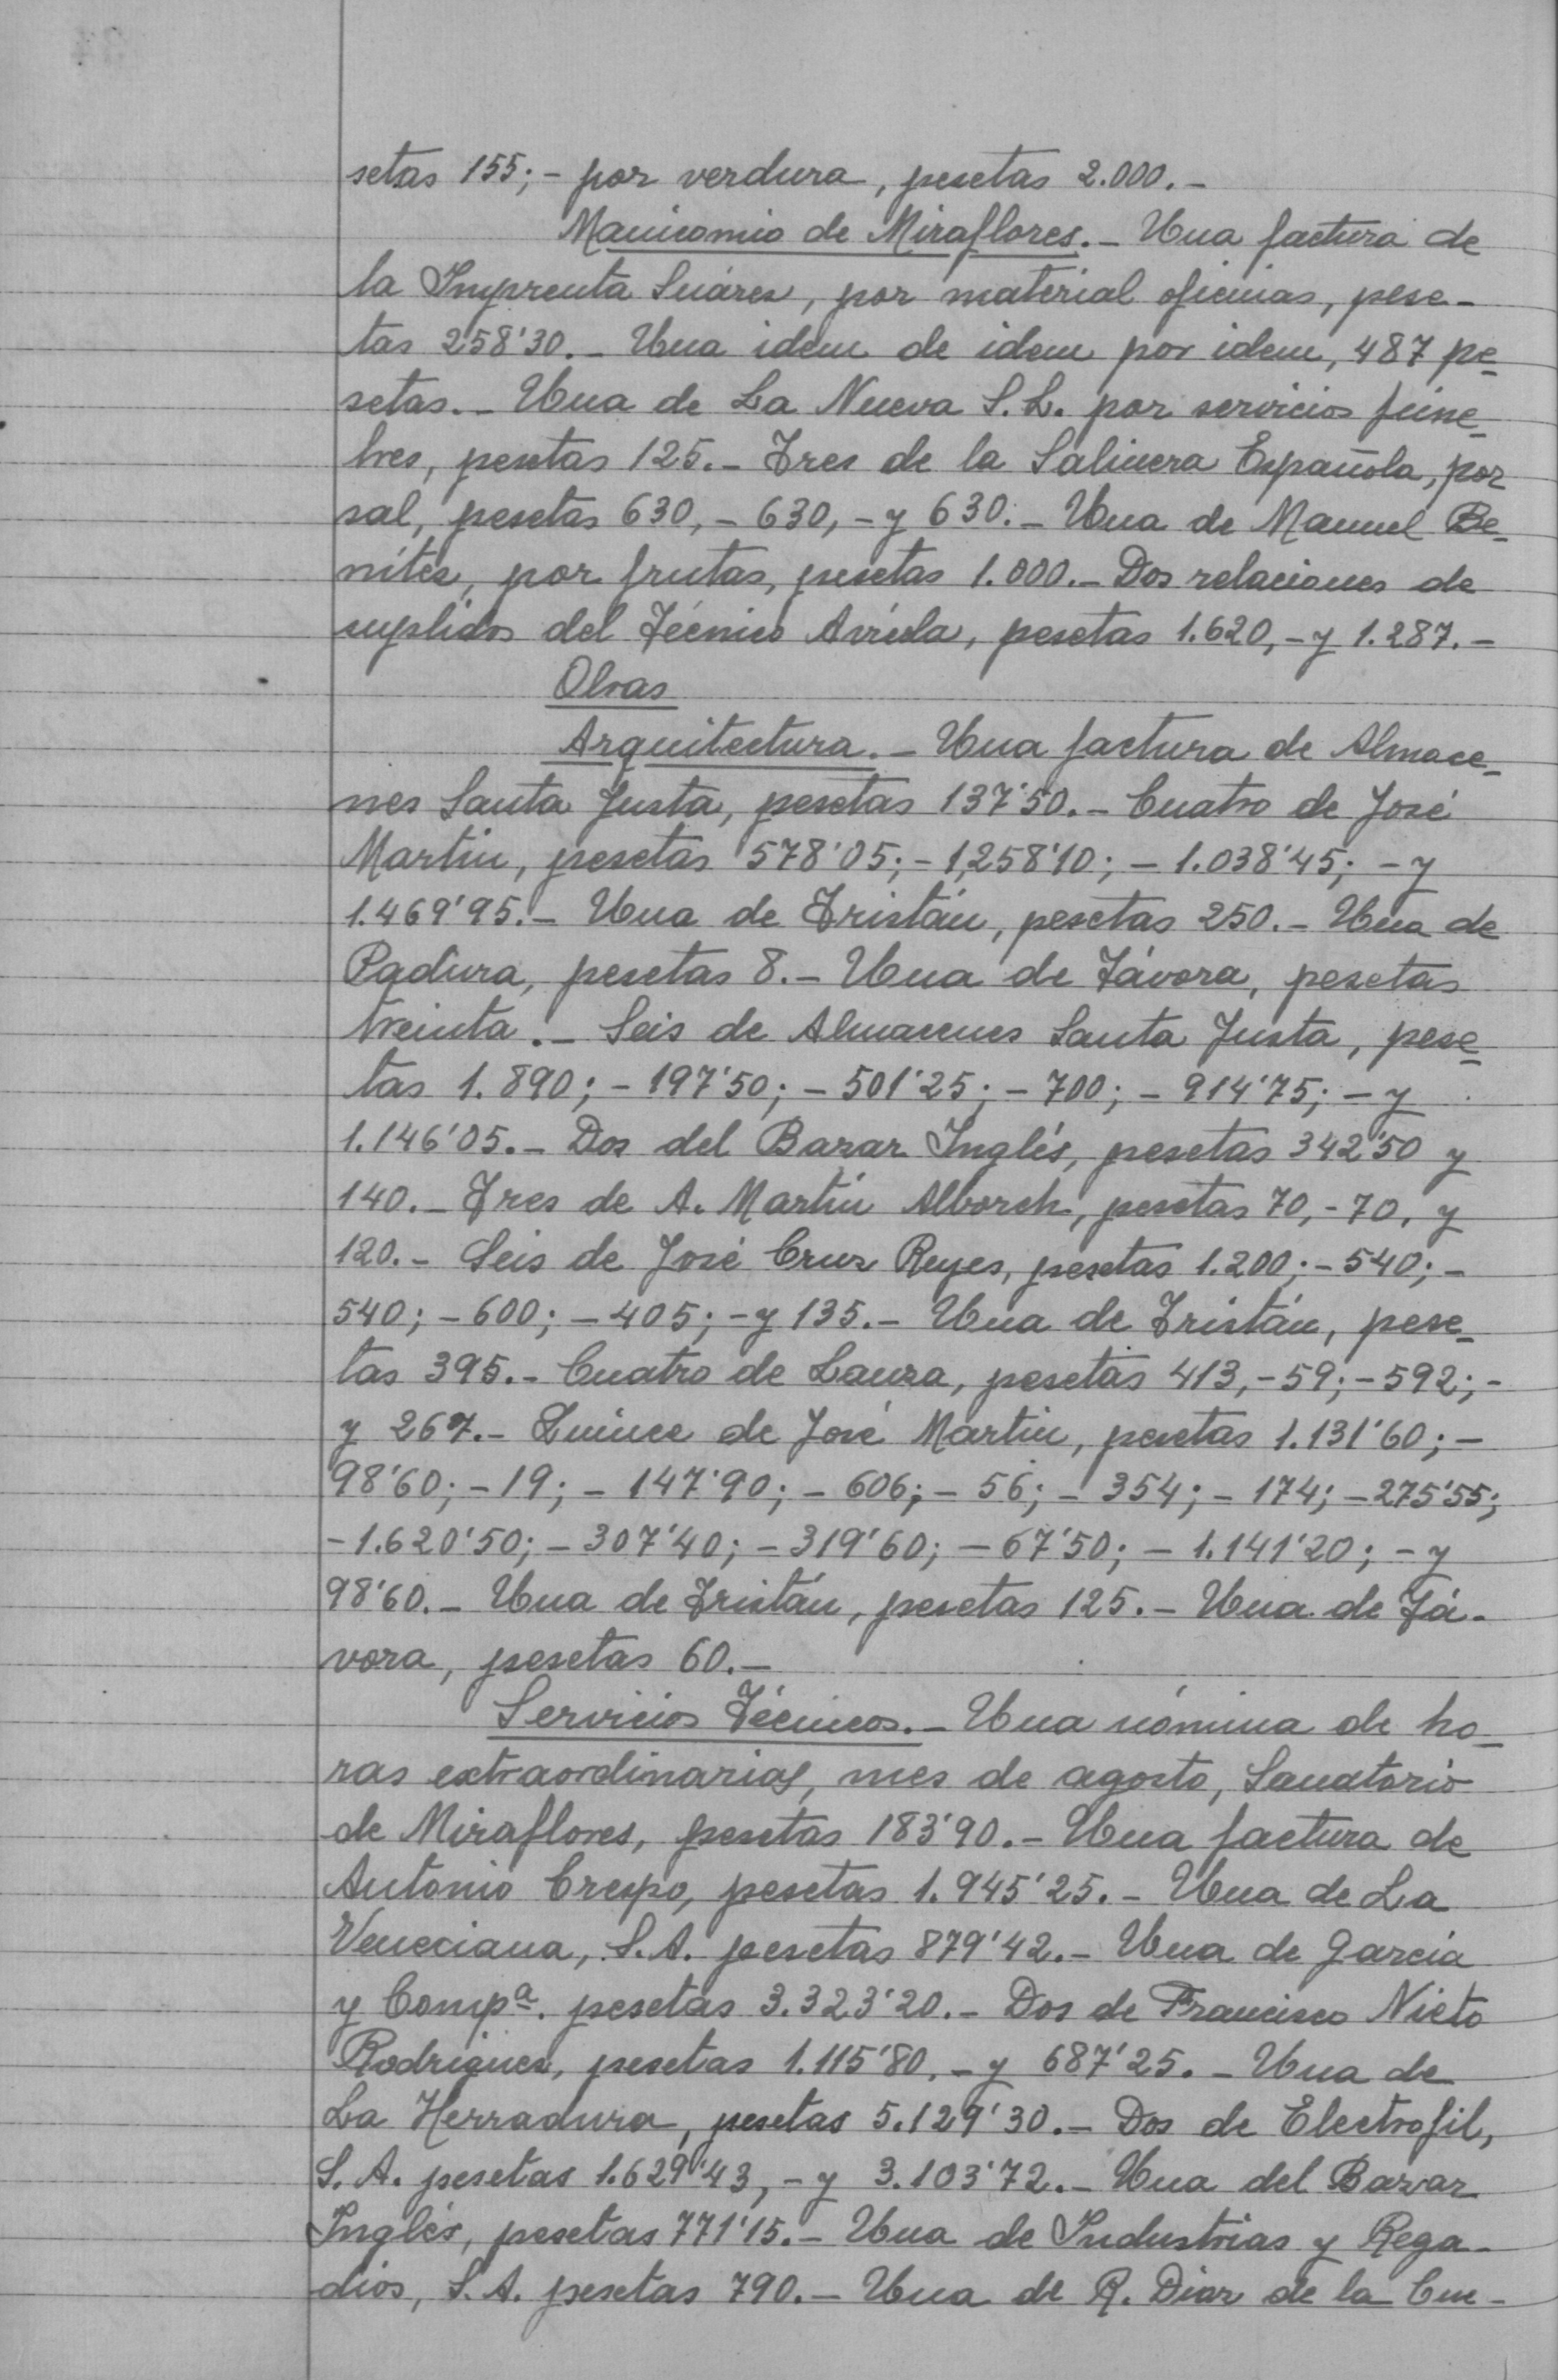 setas 155;- por verdura, pesetas 2.000.-
Manicomio de Miraflores.- Una factura de
la Imprenta Suárez, por material oficinas, pese-
tas 258'30.- Una idem de idem por idem, 487 pe-
setas.- Una de La Nueva S.L. por servicios fúne-
bres, pesetas 125.- Tres de la Salinera Española, por
sal, pesetas 630,- 630,- y 630.- Una de Manuel Be-
nítez, por frutas, pesetas 1.000.- Dos relaciones de
suplidos del Técnico Avícola, pesetas 1.620,- y 1.287.-
Obras
Arquitectura.- Una factura de Almace-
nes Santa Justa, pesetas 137'50.- Cuatro de José
Martín, pesetas 578'05;- 1,258'10;- 1.038'45;- y
1.469'95.- Una de Tristán, pesetas 250.- Una de
Padura, pesetas 8.- Una de Távora, pesetas
treinta.- Seis de Almacenes Santa Justa, pese-
tas 1.890;- 197'50;- 501'25;- 700;- 914'75;- y
1.146'05.- Dos del Bazar Inglés, pesetas 342'50 y
140.- Tres de A. Martín Alborch, pesetas 70,- 70, y
120.- Seis de José Cruz Reyes, pesetas 1.200;- 540;-
540;- 600;- 405;- y 135.- Una de Tristán, pese-
tas 395.- Cuatro de Lauza, pesetas 413,- 59;- 592;-
y 267.- Quince de José Martín, pesetas 1.131'60;-
98'60;- 19;- 147'90;- 606;- 56;- 354;- 174;- 275'55;
- 1.620'50;- 307'40;- 319'60;- 67'50;- 1.141'20;- y
98'60.- Una de Tristán, pesetas 125.- Una de Tá-
vora, pesetas 60.-
Servicios Técnicos.- Una nómina de ho-
ras extraordinarias, mes de agosto, Sanatorio
de Miraflores, pesetas 183'90.- Una factura de
Antonio Crespo, pesetas 1.945'25.- Una de La
Veneciana, S.A. pesetas 879'42.- Una de García
y Compª. pesetas 3.323'20.- Dos de Francisco Nieto
Rodríguez, pesetas 1.115'80,- y 687'25.- Una de
La Herradura, pesetas 5.129'30.- Dos de Electrofil,
S.A. pesetas 1.629'43,- y 3.103'72.- Una del Bazar
Inglés, pesetas 771'15.- Una de Industrias y Rega-
dios, S.A. pesetas 790.- Una de R. Diaz de la Cue-